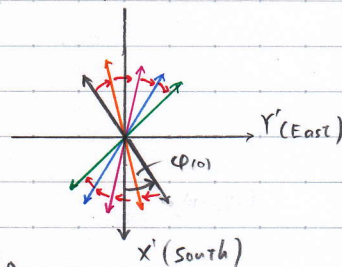 Y'(East)
φ(0)
X'(South)